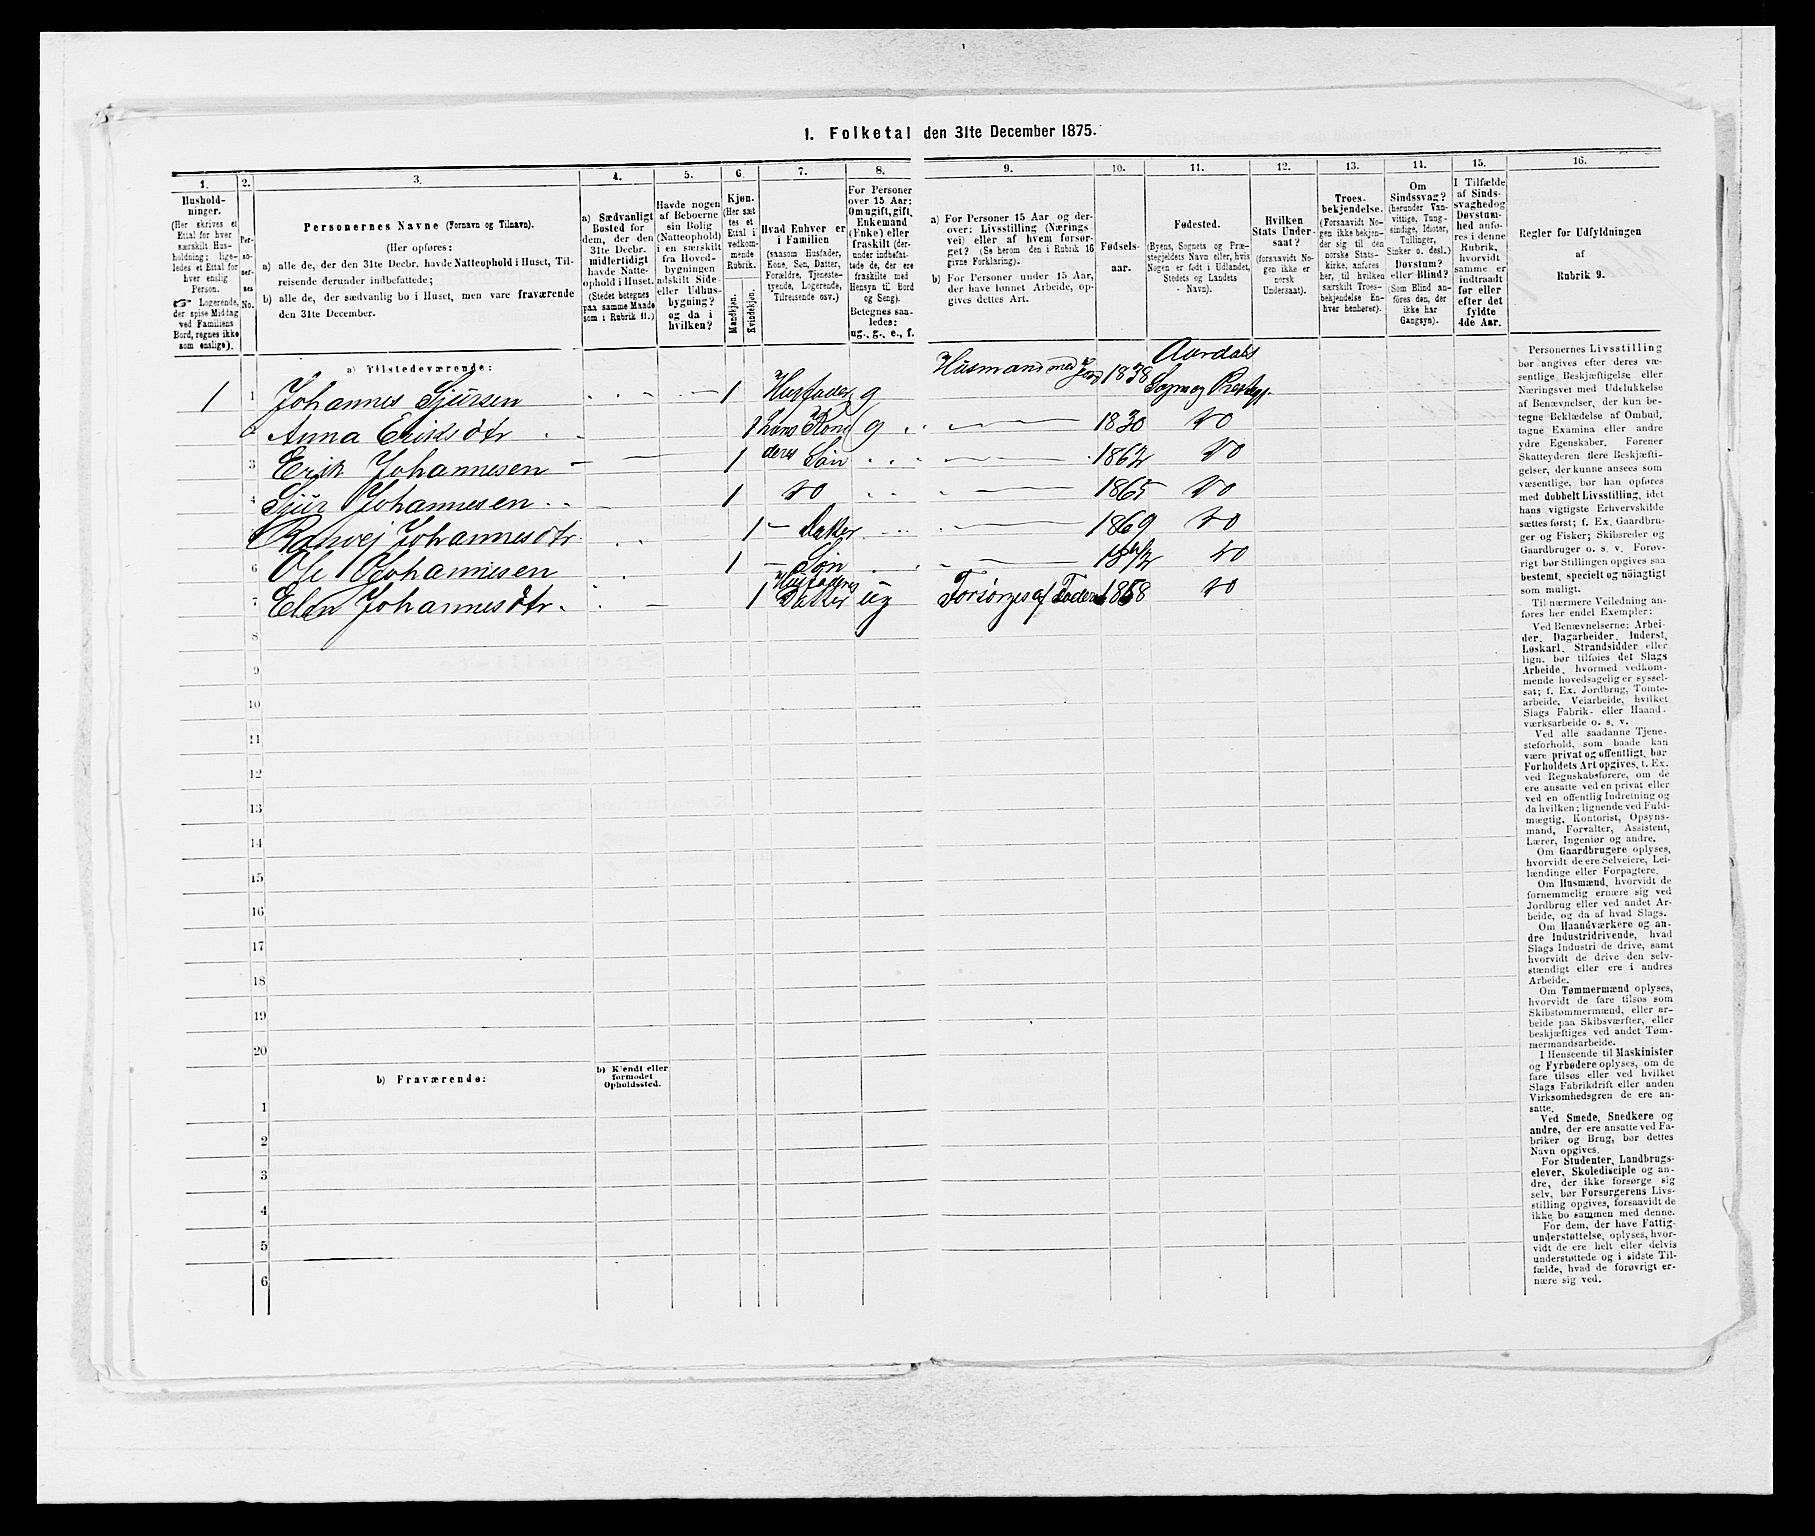 1. Folketal den 31te December 1875.
1. 2. 3. 4. 5. 6. 7. 8. 9. 10. 11. 12. 13. 14. 15. 16.
Hushold-
ninger.
(Her skrives et
Ettal for hver
særskilt Hus-
holdning; lige-
ledes et Ettal for
hver enslig
Person.
☞ Logerende,
der spise Middag
ved Familiens
Bord, regnes ikke
som enslige).
Per-
soner-
nes
No.
Personernes Navne (Fornavn og Tilnavn).
(Her opføres:
a) alle de, der den 31te Decbr. havde Natteophold i Huset, Til-
reisende derunder indbefattede;
b) alle de, der sædvanlig bo i Huset, men vare fraværende
den 31te December.
a) Sædvanligt
Bosted for
dem, der den
31te Decbr.
midlertidigt
havde Natte-
ophold i Huset.
(Stedet betegnes
paa samme Maade
som i Rubrik 11.)
Havde nogen
af Beboerne
sin Bolig
(Natteophold)
i en særskilt
fra Hoved-
bygningen
adskilt Side-
eller Udhus-
bygning?
og da i
hvilken?
Kjøn.
(Her sæt
tes et
Ettal i
vedkom-
mende
Rubrik.
Mandkjøn.
Kvindekjøn.
Hvad Enhver er
i Familien
(saasom Husfader,
Kone, Søn, Datter,
Forældre, Tjeneste-
tyende, Logerende,
Tilreisende osv.)
For Personer
over 15 Aar:
Om ugift, gift,
Enkemand
(Enke) eller
fraskilt (der-
under indbefat-
tede de, der ere
fraskilte med
Hensyn til Bord
og Seng).
Betegnes saa-
ledes:
ug., g., e., f.
a) For Personer 15 Aar og der-
over: Livsstilling (Nærings
vei) eller af hvem forsør-
get? (Se herom den i Rubrik 16
givne Forklaring).
b) For Personer under 15 Aar,
der have lønnet Arbeide, op-
gives dettes Art.
Fødsels-
aar.
Fødested.
(Byens, Sognets og Præ-
stegjeldets Navn eller, hvis
Nogen er født i Udlandet,
Stedets og Landets
Navn).
Hvilken
Stats Under-
saat?
(forsaavidt No-
gen ikke er
norsk
Undersaat).
Troes-
bekjendelse.
(Forsaavidt No-
gen ikke bekjen-
der sig til den
norske Stats-
kirke, anføres
her, til hvilken
særskilt Troes-
bekjendelse En-
hver henhører).
Om
Sindssvag?
(herunder Van-
vittige, Tung-
sindige, Idioter,
Tullinger,
Sinker o. desl.)
Døvstum?
eller Blind?
(Som Blind an-
føres den, der
ikke har
Gangsyn).
I Tilfælde
af Sinds-
svaghed og
Døvstum-
hed anfø-
res i denne
Rubrik,
hvorvidt
samme er
indtraadt
før eller
efter det
fyldte
4de Aar.
Regler for Udfyldningen
af
Rubrik 9.
a) Tilstedeværende:
1 1 Johannes Sjursen 1 Husfader g Husmand med Jord 1838 Aardals Sogn og Prestegj.
2 Anna Eriksdtr 1 hans Kone g 1830 do
3 Erik Johannesen 1 deres Søn 1862 do
4 Sjur Johannesen 1 do 1865 do
5 Ranvej Johannesdtr. 1 Datter 1869 do
6 Ole Johannesen 1 Søn 1872 do
7 Elen Johannesdtr. 1 Husfaders Datter ug Forsørges af Faderen 1858 do
8
9
10
11
12
13
14
15
16
17
18
19
20
b) Fraværende:
b) Kjendt eller
formodet
Opholdssted.
1
2
3
4
5
6
Personernes Livsstilling
bør angives efter deres væ-
sentlige Beskjæftigelse eller
Næringsvei med Udelukkelse
af Benævnelser, der kun be-
tegne Beklædelse af Ombud,
tagne Examina eller andre
ydre Egenskaber. Forener
Skatteyderen flere Beskjæfti-
gelser, der kunne ansees som
væsentlige, bør han opføres
med dobbelt Livsstilling, idet
hans vigtigste Erhvervskilde
sættes først; f. Ex. Gaardbru-
ger og Fisker; Skibsreder og
Gaardbruger o. s. v. Forøv-
rigt bør Stillingen opgives saa
bestemt, specielt og nøiagtigt
som muligt.
Til nærmere Veiledning an-
føres her endel Exempler:
Ved Benævnelserne: Arbei-
der, Dagarbeider, Inderst,
Løskarl, Strandsidder eller
lign. bør tilføies det Slags
Arbeide, hvormed vedkom-
mende hovedsagelig er syssel-
sat; f. Ex. Jordbrug, Tomte-
arbeide, Veiarbeide, hvilket
Slags Fabrik- eller Haand-
værksarbeide o. s. v.
Ved alle saadanne Tjene-
steforhold, som baade kan
være privat og offentligt, bør
Forholdets Art opgives, t. Ex.
ved Regnskabsførere, om de
ere ansatte ved en privat eller
ved en offentlig Indretning og
da hvilken; lignende ved Fuld-
mægtig, Kontorist, Opsyns-
mand, Forvalter, Assistent,
Lærer, Ingeniør og andre.
Om Gaardbrugere oplyses,
hvorvidt de ere Selveiere, Lei-
lændinge eller Forpagtere.
Om Husmænd, hvorvidt de
fornemmelig ernære sig ved
Jordbrug eller ved andet Ar-
beide, og da af hvad Slags.
Om Haandværkere og an-
dre Industridrivende, hvad
Slags Industri de drive, samt
hvorvidt de drive den selv-
stændigt eller ere i andres
Arbeide.
Om Tømmermænd oplyses,
hvorvidt de fare tilsøs som
Skibstømmermænd, eller ar-
beide paa Skibsværfter, eller
beskjæftiges ved andet Tøm-
mermandsarbeide.
I Henseende til Maskinister
og Fyrbødere oplyses, om de
fare tilsøs eller ved hvilket
Slags Fabrikdrift eller anden
Virksomhedsgren de ere an-
satte.
Ved Smede, Snedkere og
andre, der ere ansatte ved Fa-
briker og Brug, bør dettes
Navn opgives.
For Studenter, Landbrugs-
elever, Skoledisciple og an-
dre, der ikke forsørge sig
selv, bør Forsørgerens Livs-
stilling opgives, forsaavidt de
ikke bo sammen med denne.
For dem, der have Fattig-
understøttelse, oplyses, hvor-
vidt de ere helt eller delvis
understøttede og i sidste Til-
fælde, hvad de forøvrigt er-
nære sig ved.